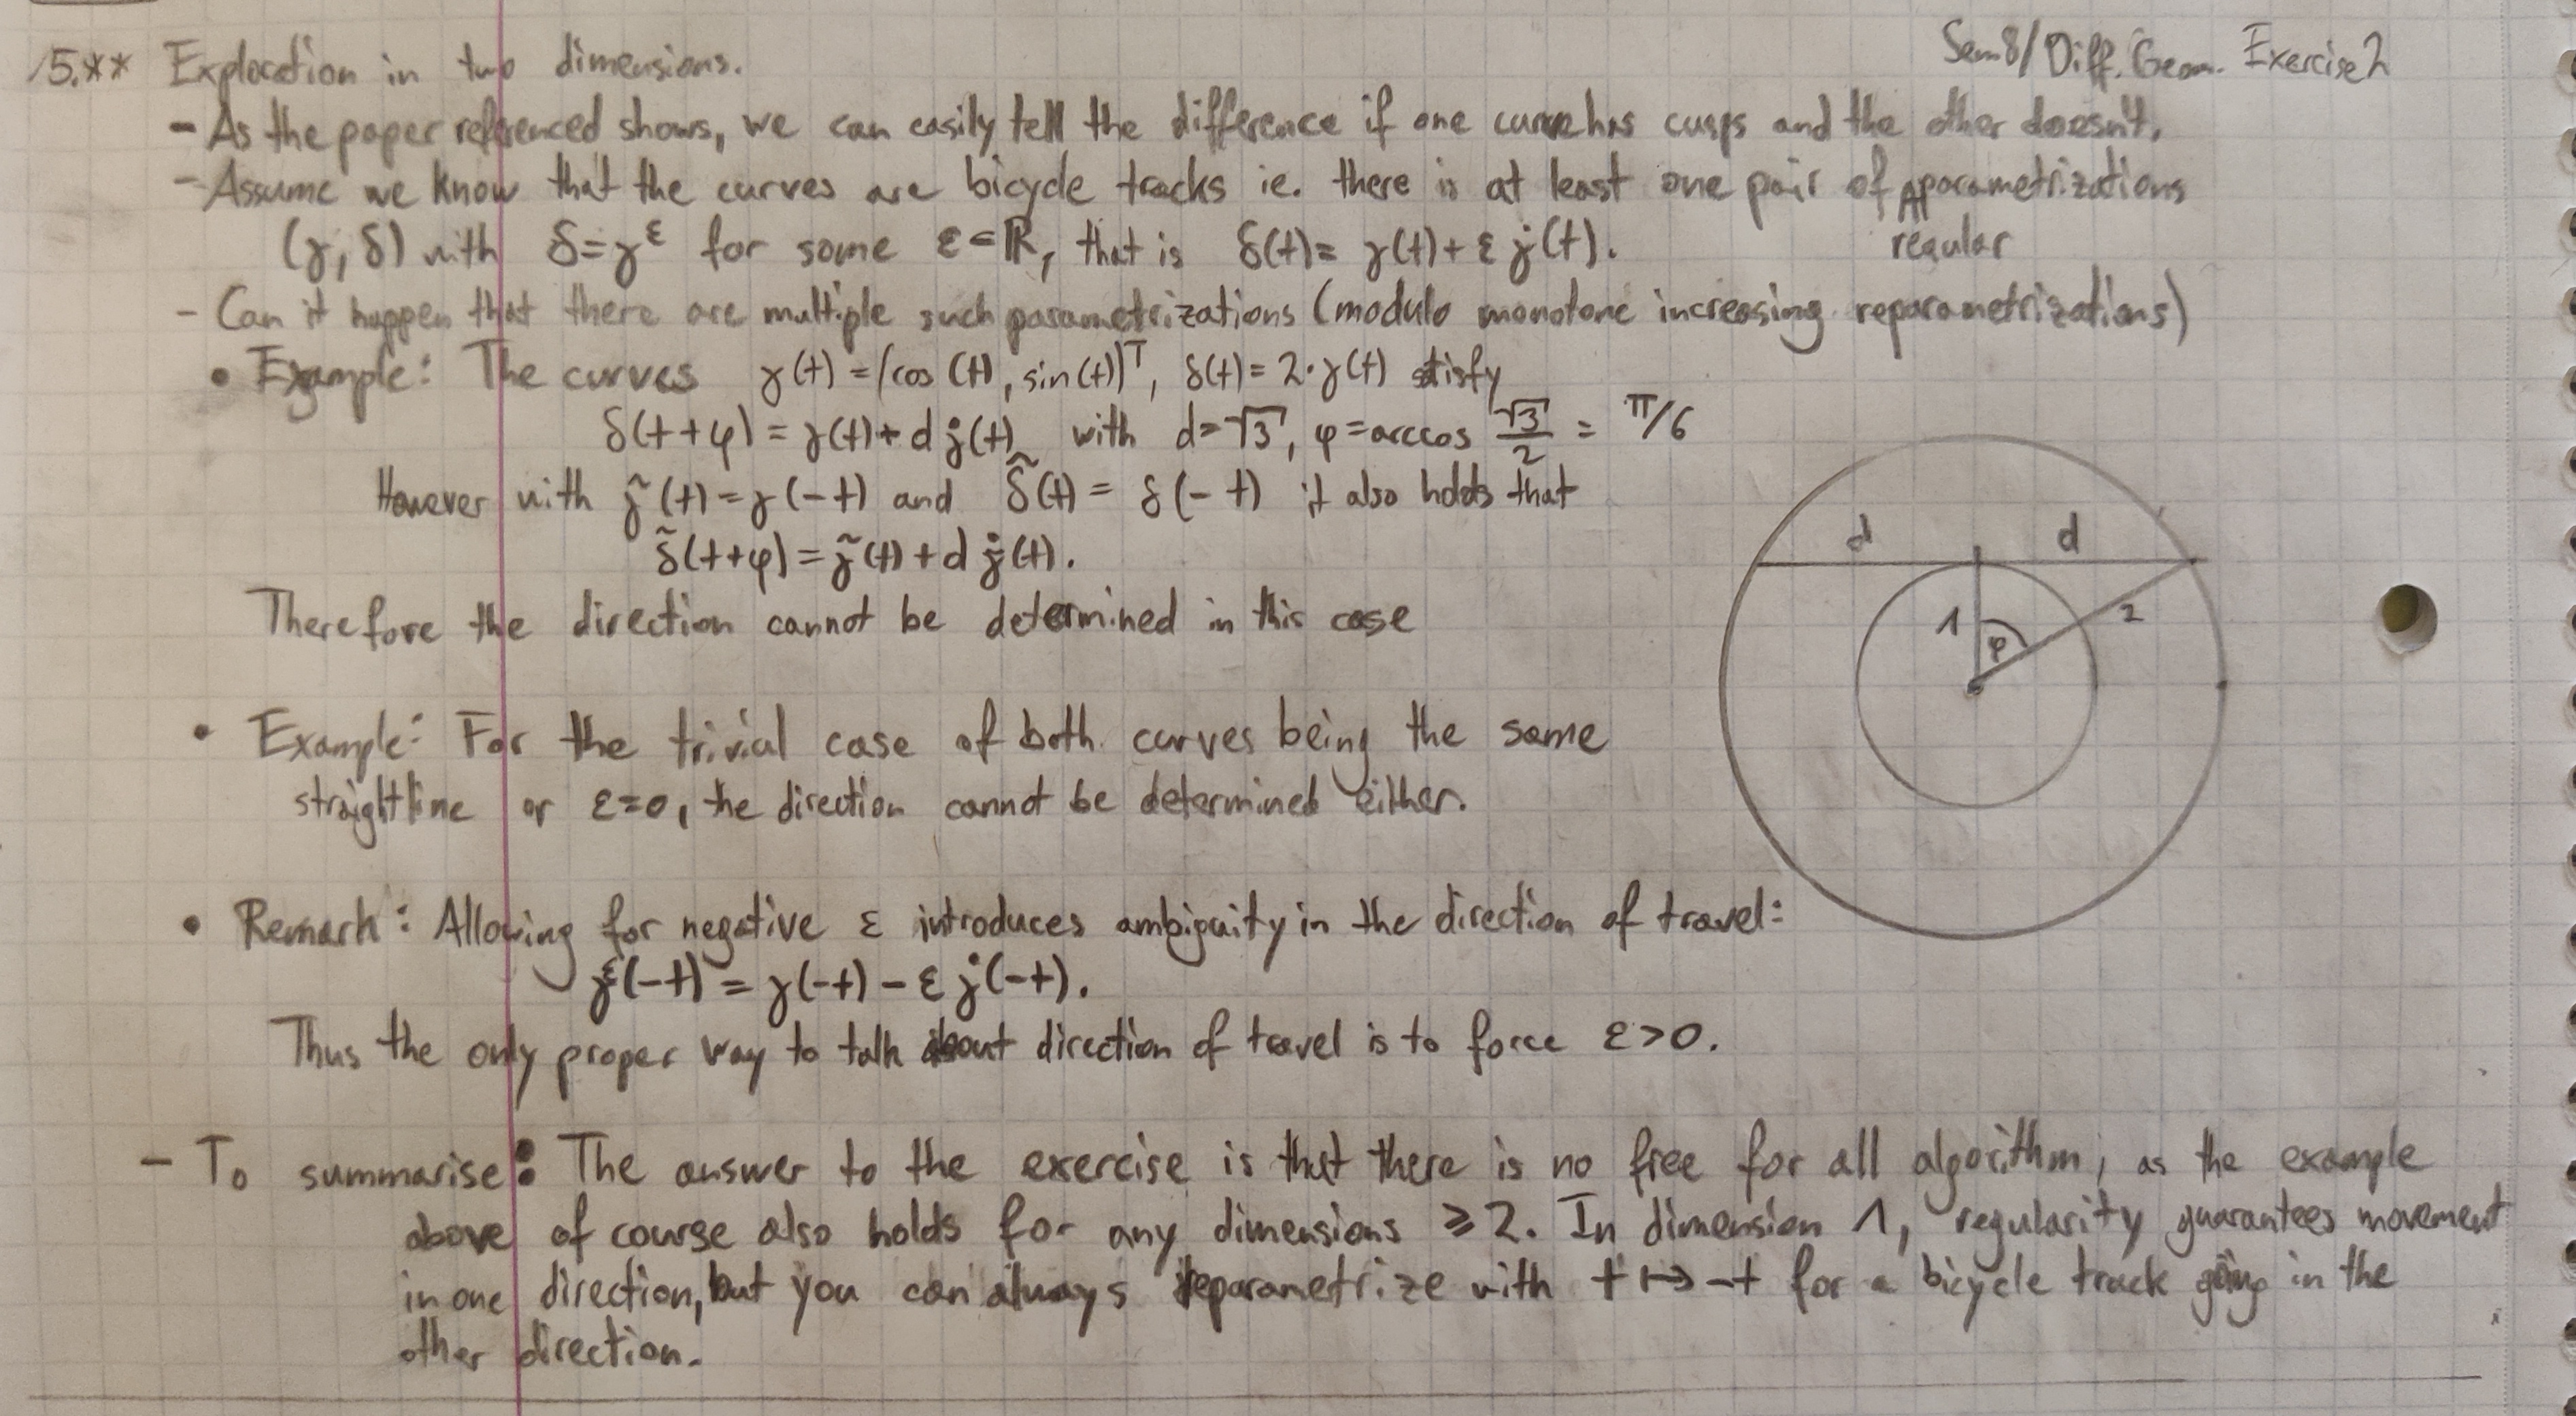 15.** Exploration in two dimensions.
Sem8/Diff. Geom. Exercise 2
- As the paper referenced shows, we can easily tell the difference if one curve has cusps and the other doesn't.
- Assume we know that the curves are bicycle tracks ie. there is at least one pair of parametrizations
regular
(γ, δ) with δ=γ^ε for some ε∈ℝ, that is δ(t)= γ(t)+ε γ̇(t).
- Can it happen that there are multiple such parametrizations (modulo monotone increasing reparametrizations)
• Example: The curves γ(t) = (cos(t), sin(t))^T, δ(t)=2·γ(t) satisfy
δ(t+φ) = γ(t)+d γ̇(t) with d=√3, φ=arccos √3/2 = π/6
However with γ̃(t)=γ(-t) and δ̃(t) = δ(-t) it also holds that
δ̃(t+φ)=γ̃(t)+d γ̃̇(t).
Therefore the direction cannot be determined in this case
d d
1 φ 2
• Example: For the trivial case of both curves being the same
straight line or ε=0, the direction cannot be determined either.
• Remark: Allowing for negative ε introduces ambiguity in the direction of travel:
γ^ε(-t) = γ(-t) - ε γ̇(-t).
Thus the only proper way to talk about direction of travel is to force ε>0.
- To summarise: The answer to the exercise is that there is no free for all algorithm, as the example
above of course also holds for any dimensions ≥2. In dimension 1, regularity guarantees movement
in one direction, but you can always reparametrize with t↦-t for a bicycle track going in the
other direction.